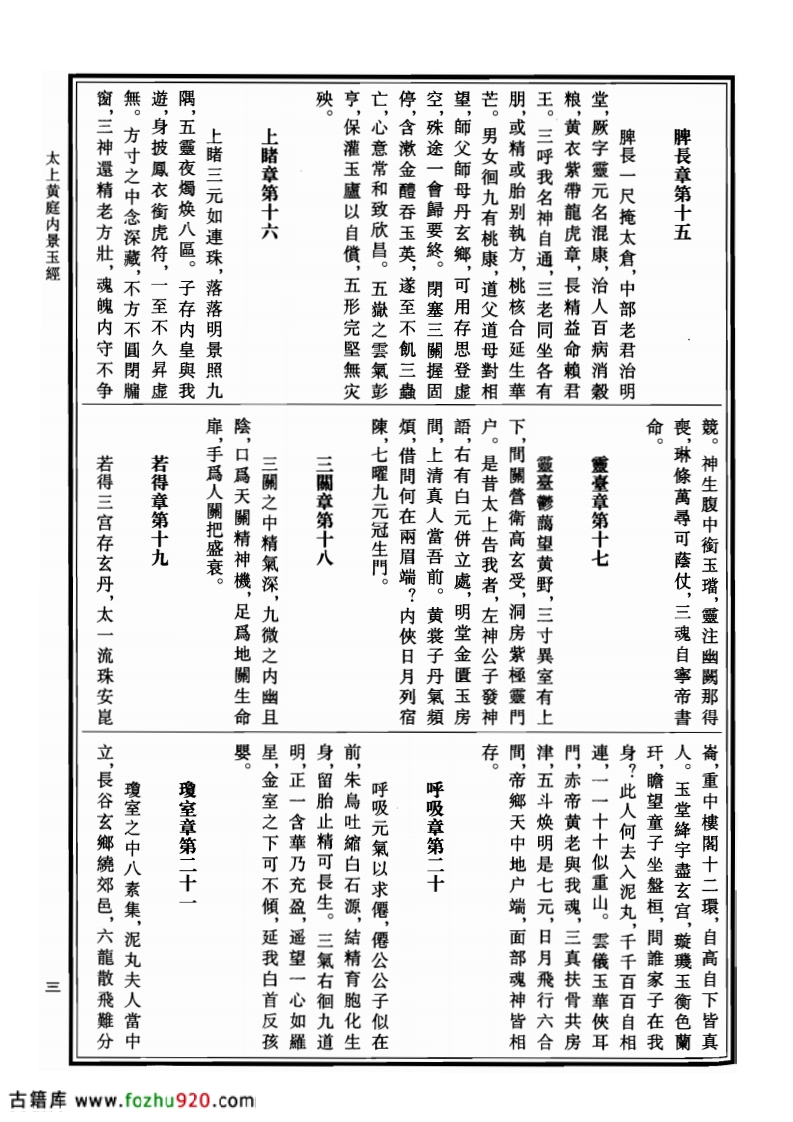 脾長章第十五
脾長一尺掩太倉，中部老君治明
堂，厥字靈元名混康，治人百病消穀
粮，黃衣紫帶龍虎章，長精益命賴君
王。三呼我名神自通，三老同坐各有
朋，或精或胎别執方，桃核合延生華
芒。男女徊九有桃康，道父道母對相
望，師父師母丹玄鄉，可用存思登虛
空，殊途一會歸要終。閉塞三關握固
停，含漱金醴吞玉英，遂至不飢三蟲
亡，心意常和致欣昌。五嶽之雲氣彭
亨，保灌玉廬以自償，五形完堅無灾
殃。
上睹章第十六
上睹三元如連珠，落落明景照九
隅，五靈夜燭焕八區。子存内皇與我
遊，身披鳳衣銜虎符，一至不久昇虛
無。方寸之中念深藏，不方不圓閉牖
窗，三神還精老方壯，魂魄内守不争
競。神生腹中銜玉璫，靈注幽闕那得
喪，琳條萬尋可蔭仗，三魂自寧帝書
命。
靈臺章第十七
靈臺鬱藹望黄野，三寸異室有上
下，間關營衛高玄受，洞房紫極靈門
户。是昔太上告我者，左神公子發神
語，右有白元併立處，明堂金匱玉房
間，上清真人當吾前。黄裳子丹氣頻
煩，借問何在兩眉端？内俠日月列宿
陳，七曜九元冠生門。
三關章第十八
三關之中精氣深，九微之内幽且
陰，口爲天關精神機，足爲地關生命
扉，手爲人關把盛衰。
若得章第十九
若得三宫存玄丹，太一流珠安崑
崙，重中樓閣十二環，自高自下皆真
人。玉堂絳宇盡玄宫，璇璣玉衡色蘭
玕，瞻望童子坐盤桓，問誰家子在我
身？此人何去入泥丸，千千百百自相
連，一一十十似重山。雲儀玉華俠耳
門，赤帝黄老與我魂，三真扶骨共房
津，五斗焕明是七元，日月飛行六合
間，帝鄉天中地户端，面部魂神皆相
存。
呼吸章第二十
呼吸元氣以求僊，僊公公子似在
前，朱鳥吐縮白石源，結精育胞化生
身，留胎止精可長生。三氣右徊九道
明，正一含華乃充盈，遥望一心如羅
星，金室之下可不傾，延我白首反孩
嬰。
瓊室章第二十一
瓊室之中八素集，泥丸夫人當中
立，長谷玄鄉繞郊邑，六龍散飛難分
太上黄庭内景玉經
三
古籍库 www.fozhu920.com